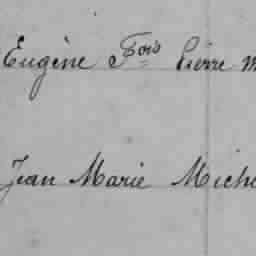 Eugène Fois Pierre M
Jean Marie Miche